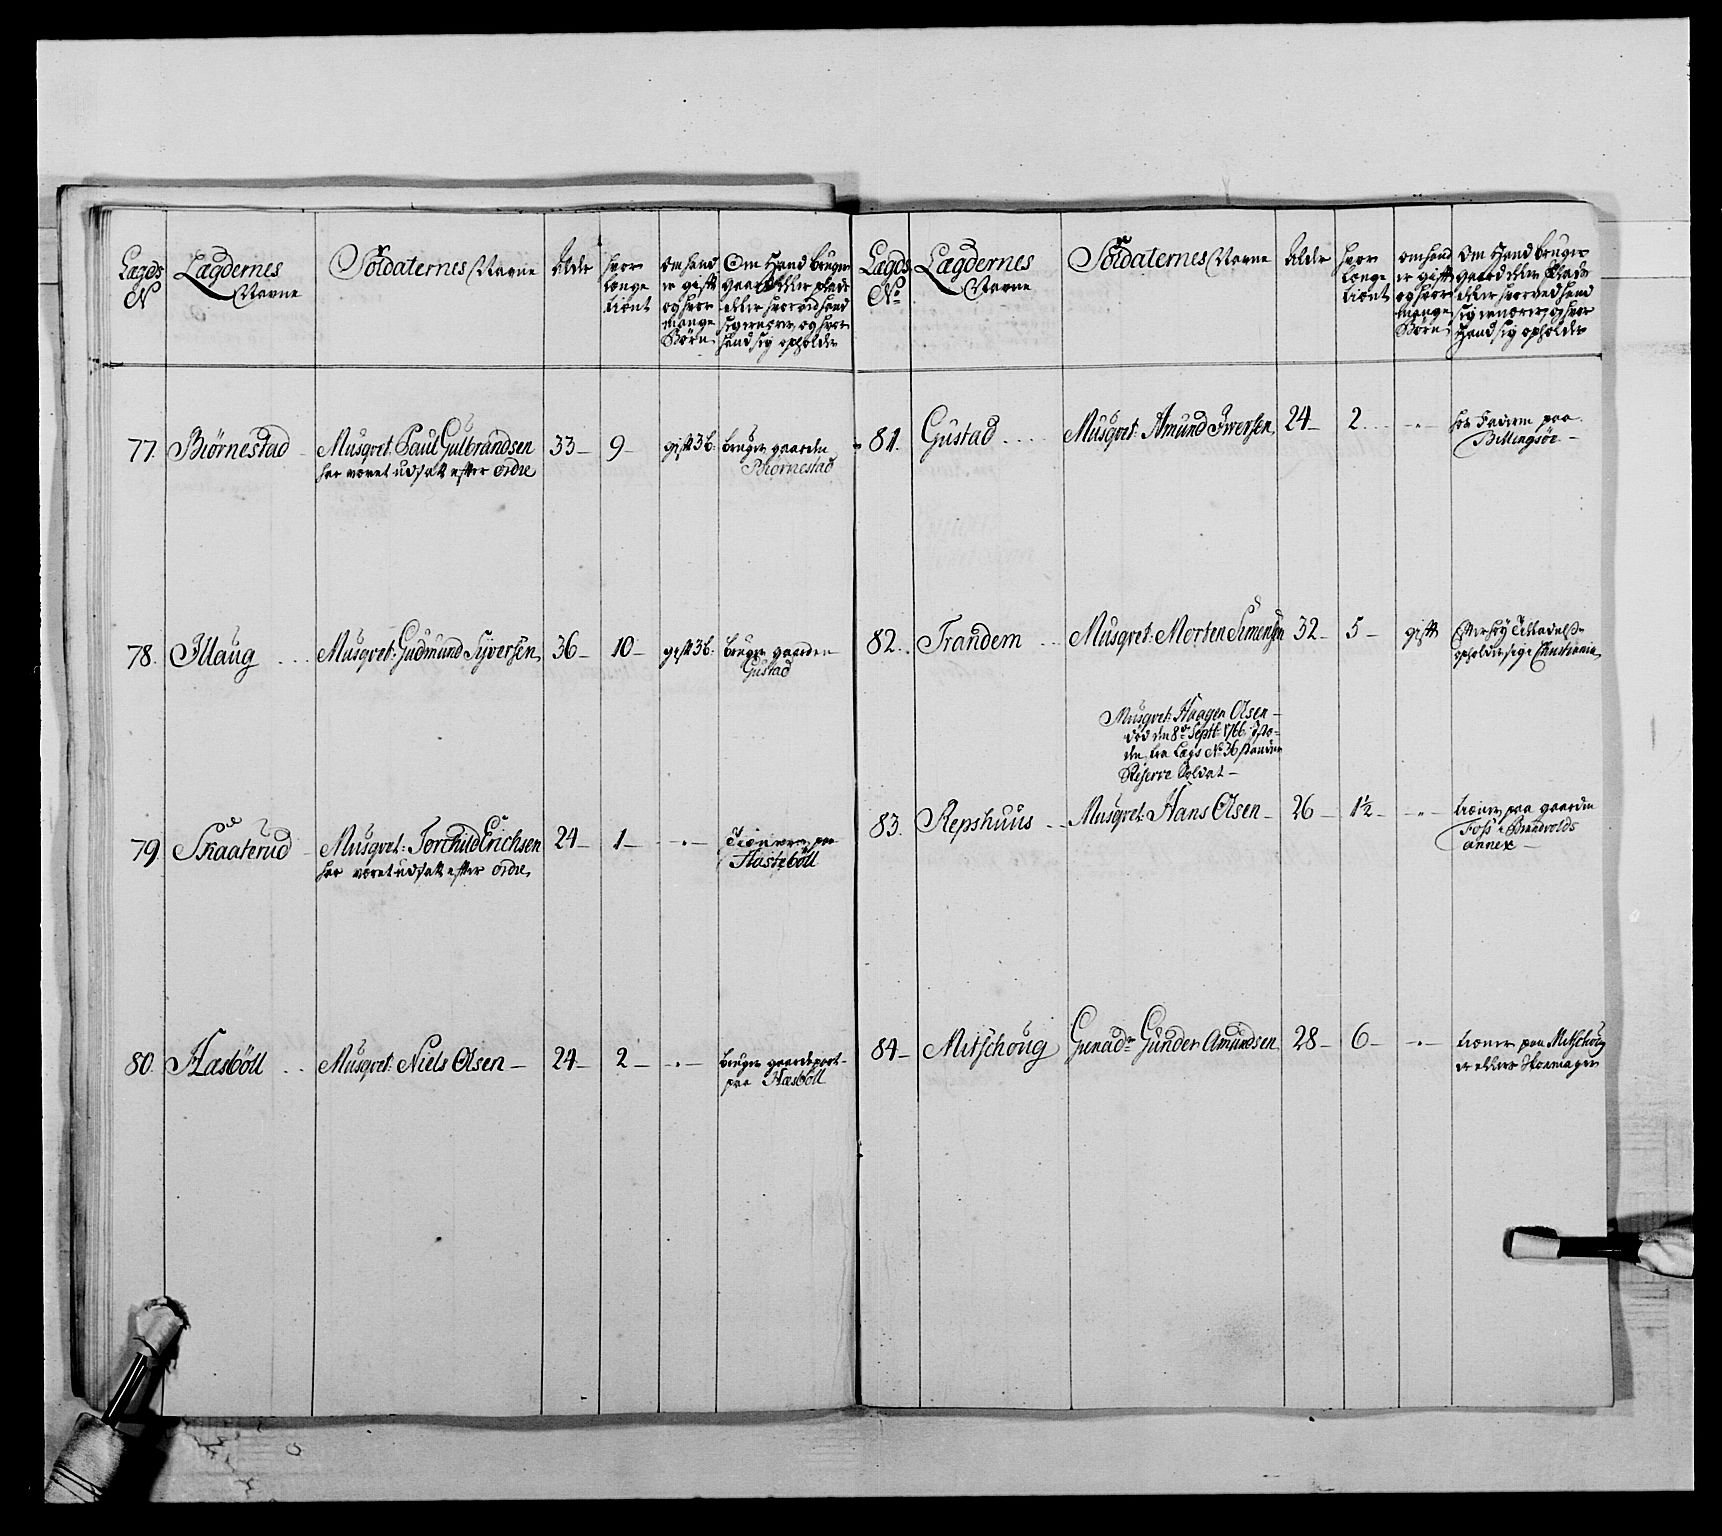 Lægds
No
Lægdernes
Navne
Soldaternes Navne
Alder
hvor
længe
tient
om hand
er gift
og hvor
mange
Børn
Om Hand bruger
gaard eller plads
eller hvorved hand
sig ernærer, og hvor
hand sig opholder
77.
Biörnestad
Musqvet: Paul Gulbrandsen
har været udsatt efter ordre
33
9
gift 3 b:
bruger gaarden
Biörnestad
78.
Illaug
Musqvet: Gudmund Syversen
36
10
gift 3 b:
bruger gaarden
Gustad
79
Skaaterud
Musqvet: Torchild Erichsen
har været udsatt efter ordre
24
1
Tiener paa
Hasteböll
80.
Hasböll
Musqvet: Niels Olsen
24
2
bruger gaardepart
paa Hasböll
Lægds
No
Lægdernes
Navne
Soldaternes Navne
Alder
hvor
længe
tient
om hand
er gift
og hvor
mange
Börn
Om Hand bruger
gaard eller Plads
eller hvorved hand
sig ernærer, og hvor
Hand sig opholder
81.
Gustad
Musqvet: Amund Iversen
24
2
hos Faderen paa
Billingsöe
82.
Trandem
Musqvet: Morten Simensen
32
5
gift
Efter höy Tilladelse
opholder sig i Christiania
Musqvet: Haagen Olsen
död den 8de Septb: 1766
den fra Lægs No 36
Reserve Soldat
83.
Repshuus
Musqvet: Hans Olsen
26
1½
tiener paa gaarden
Foss i Brandvolds
annex
84
Mitschoug
Grenadr Gunder Amundsen
28
6
tiener paa Mitschoug
er ellers Skoemager